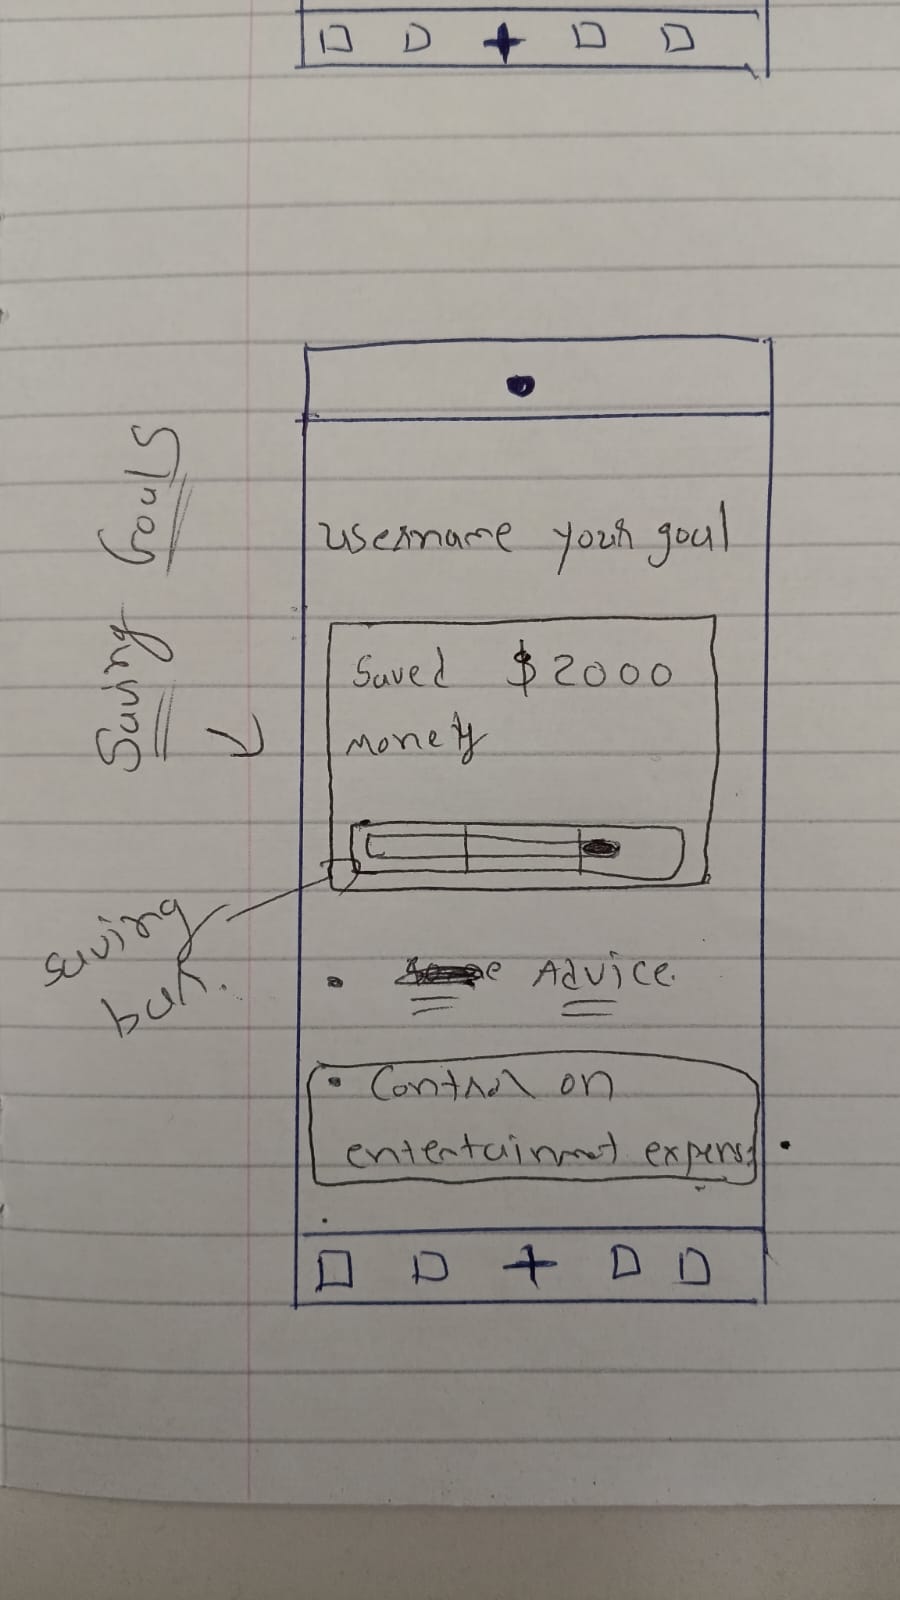 Saving Goals
username your goal
Saved $2000
money
saving
bar.
Advice.
Control on
entertainment expens